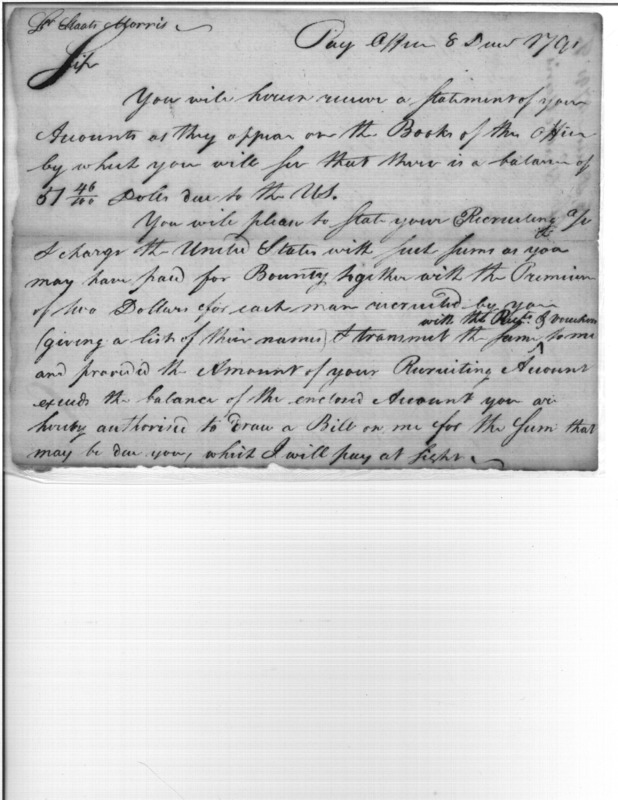 Staats Morris
Pay Office 8 Decr 179
Sir
You will herein receive a statement of your
Accounts as they appear on the Books of this Office
by which you will see that there is a balance of
51 46/100 Dolls due to the US.
You will please to state your Recruiting a/c
& charge the United States with such sums as you
may have paid for Bounty together with the Premium
of two Dollars for each man recruited by you
with the Recpts. & vouchers
(giving a list of their names) & transmit the same to me
and provided the Amount of your Recruiting Account
exceeds the balance of the enclosed Account you are
hereby authorised to draw a Bill on me for the sum that
may be due you, which I will pay at sight.